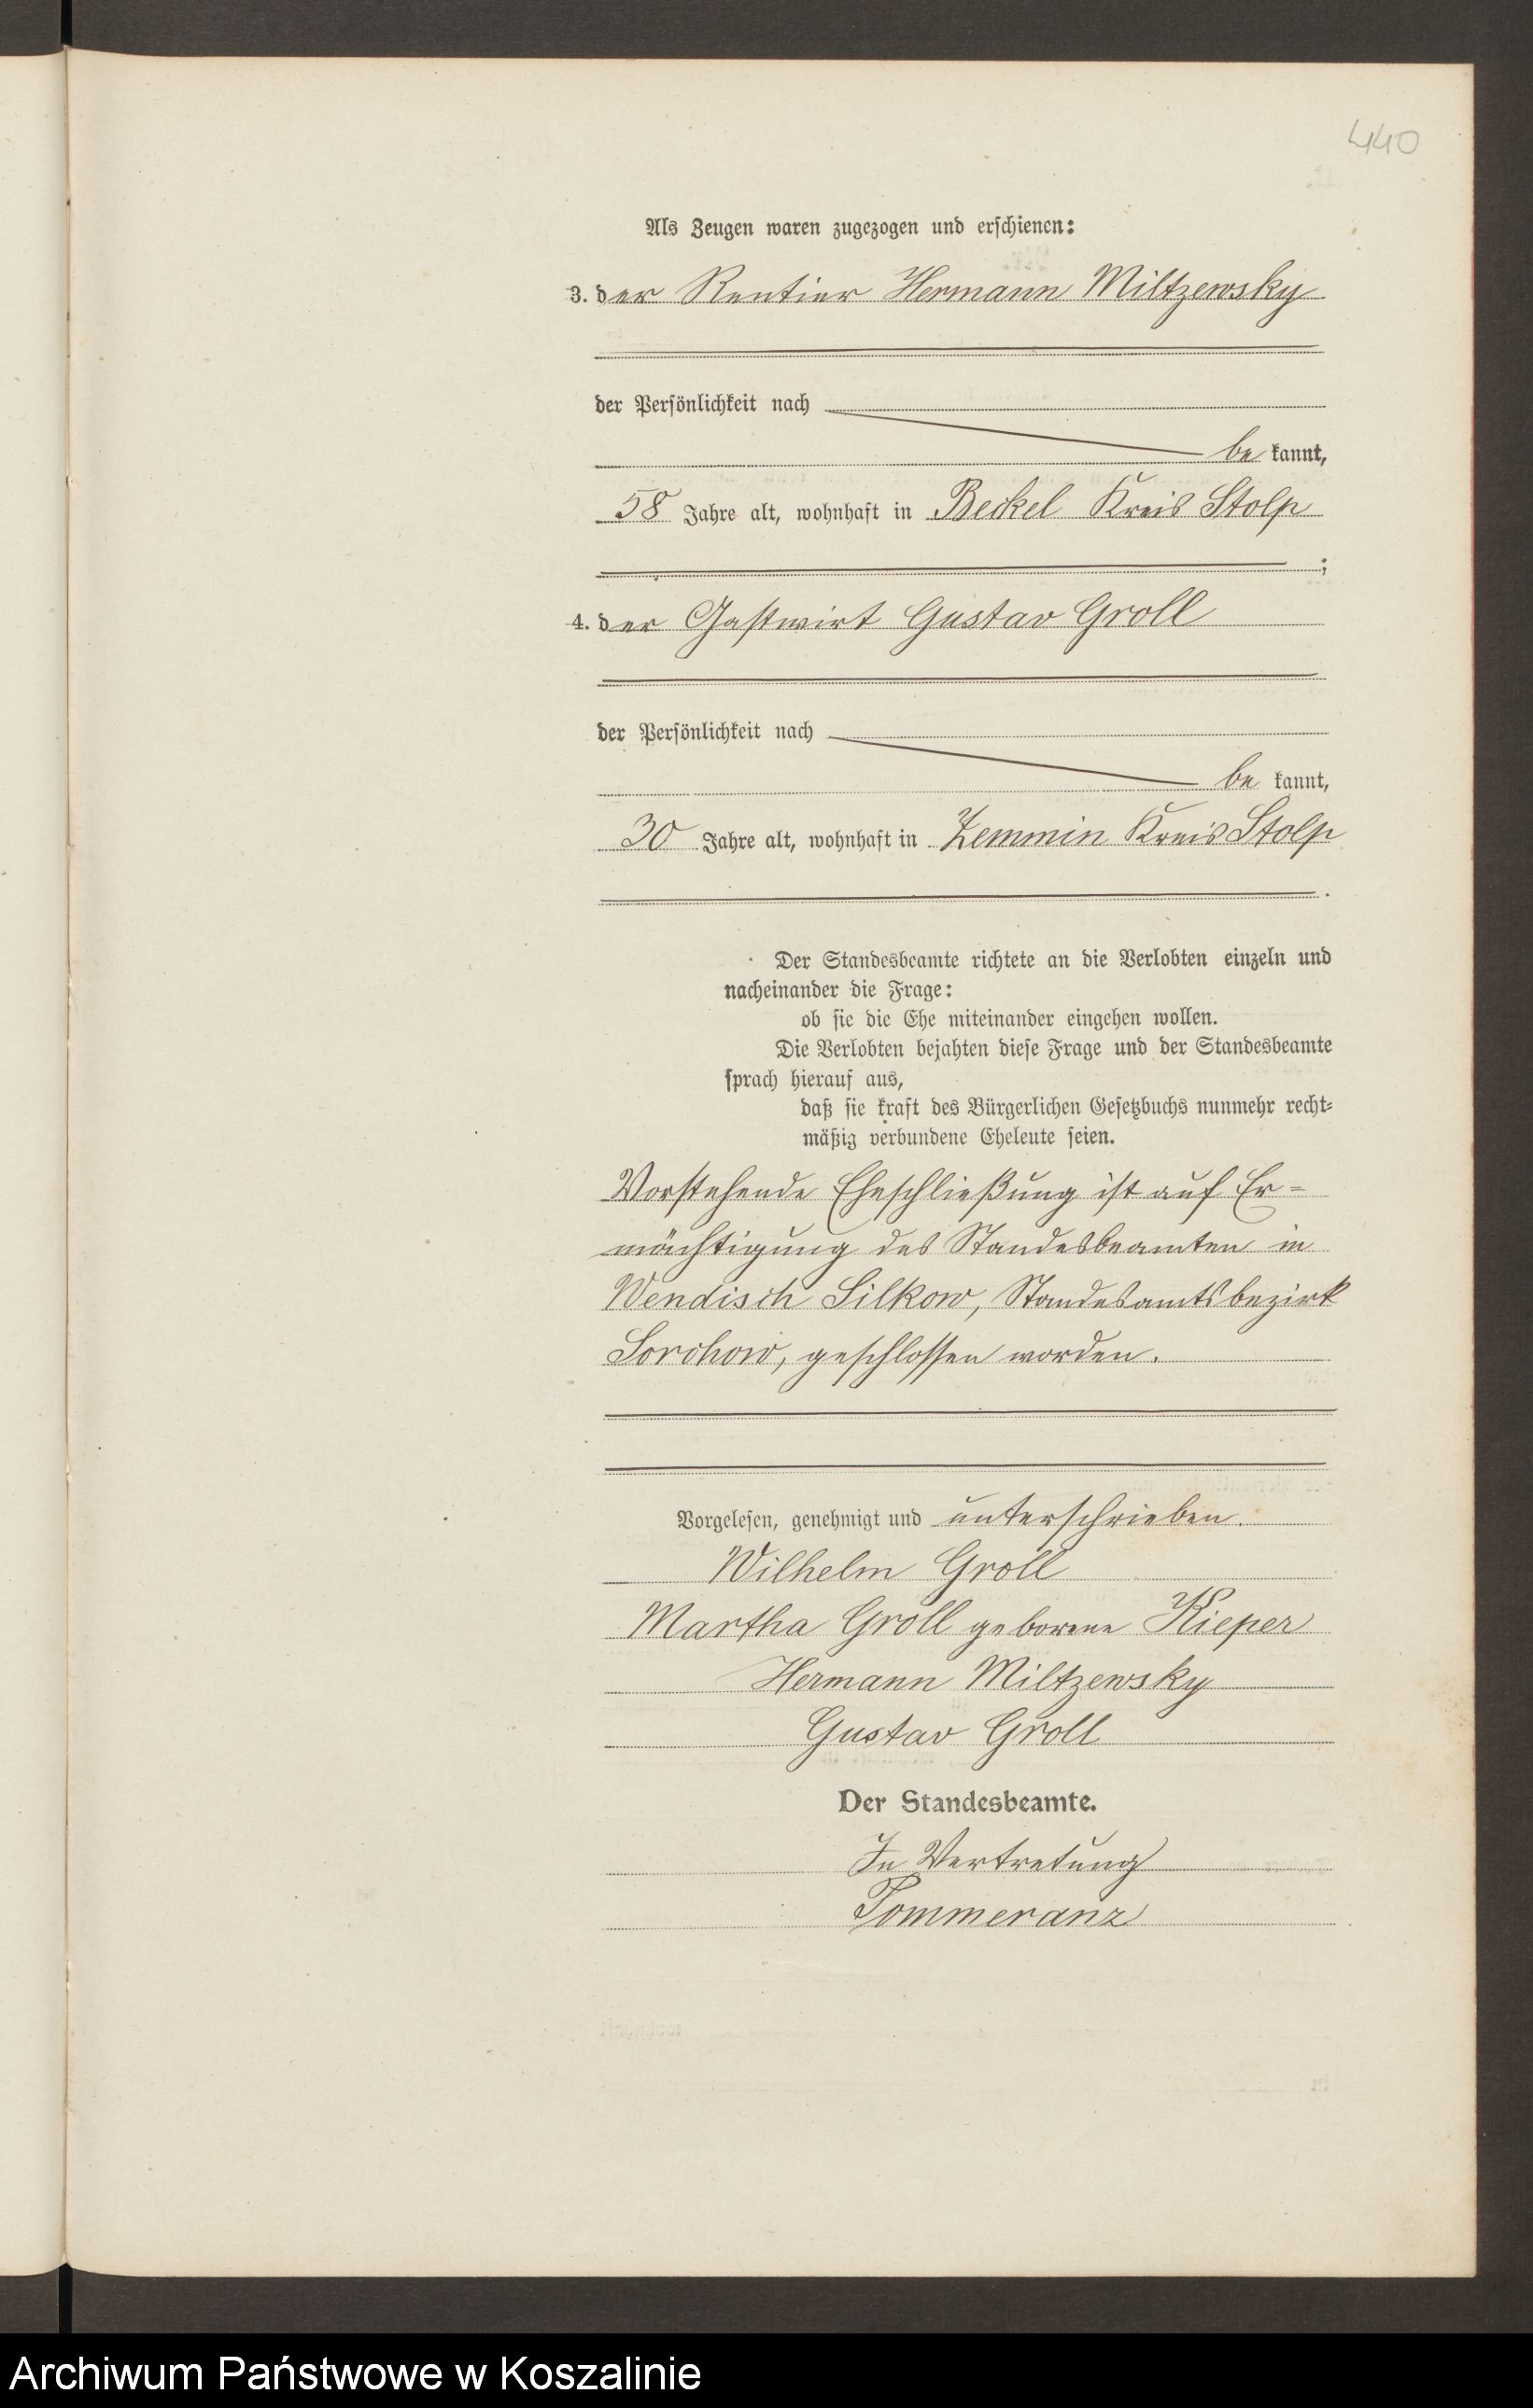 440
Als Zeugen waren zugezogen und erschienen:
3. der Rentier Hermann Miltzewsky
der Persönlichkeit nach
be kannt,
58 Jahre alt, wohnhaft in Beckel Kreis Stolp
;
4. der Gastwirt Gustav Groll
der Persönlichkeit nach
be kannt,
30 Jahre alt, wohnhaft in Zemmin Kreis Stolp
.
Der Standesbeamte richtete an die Verlobten einzeln und
nacheinander die Frage:
ob sie die Ehe miteinander eingehen wollen.
Die Verlobten bejahten diese Frage und der Standesbeamte
sprach hierauf aus,
daß sie kraft des Bürgerlichen Gesetzbuchs nunmehr recht-
mäßig verbundene Eheleute seien.
Vorstehende Eheschließung ist auf Er-
mächtigung des Standesbeamten in
Wendisch Silkow, Standesamtsbezirk
Sorchow, geschlossen worden.
Vorgelesen, genehmigt und unterschrieben.
Wilhelm Groll
Martha Groll geborene Kieper
Hermann Miltzewsky
Gustav Groll
Der Standesbeamte.
In Vertretung
Pommeranz
Archiwum Państwowe w Koszalinie